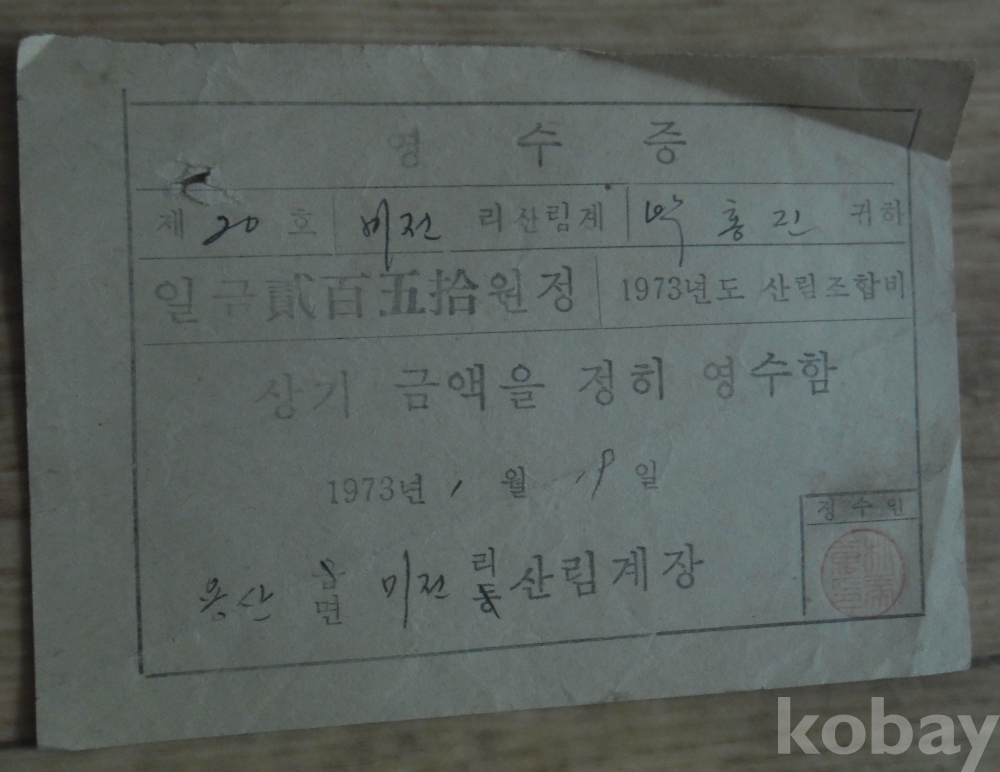 영수증
제 20 호 미전 리산림계 박홍진 귀하
일금貳百五拾원정 1973년도 산림조합비
상기 금액을 정히 영수함
1973년 1월 19일
징수인
용산 읍면 미전 리동 산림계장
kobay